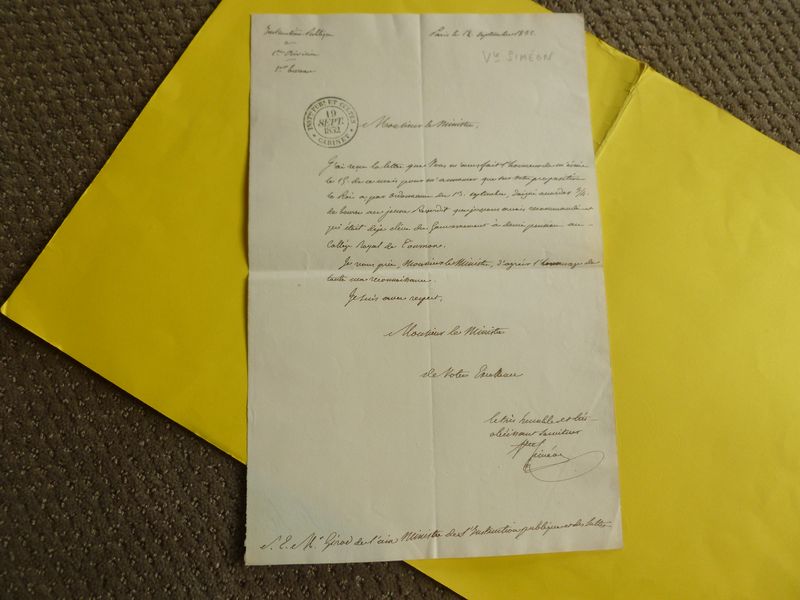 Instruction Publique
1ere Division
1er bureau
Paris le 18 septembre 1832.
Vte SIMÉON
INST. PUB. ET CULTES
19
SEPT.
1832
CABINET
Monsieur le Ministre,
J'ai reçu la lettre que Vous m'avez fait l'honneur de m'écrire
le 15 de ce mois pour m'annoncer que sur votre proposition
le Roi a par ordonnance du 13 septembre, daigné accorder 3/4
de bourse au jeune que je vous avais recommandé et
qui était déjà élève du Gouvernement à demi pension au
Collège Royal de Tournon.
Je vous prie, Monsieur le Ministre, d'agréer l'hommage de
toute ma reconnaissance.
Je suis avec respect,
Monsieur le Ministre
de Votre Excellence
le très humble et très
obéissant serviteur
Siméon
S. E. Mr. Girod de l'ain Ministre de l'Instruction publique et des Cultes